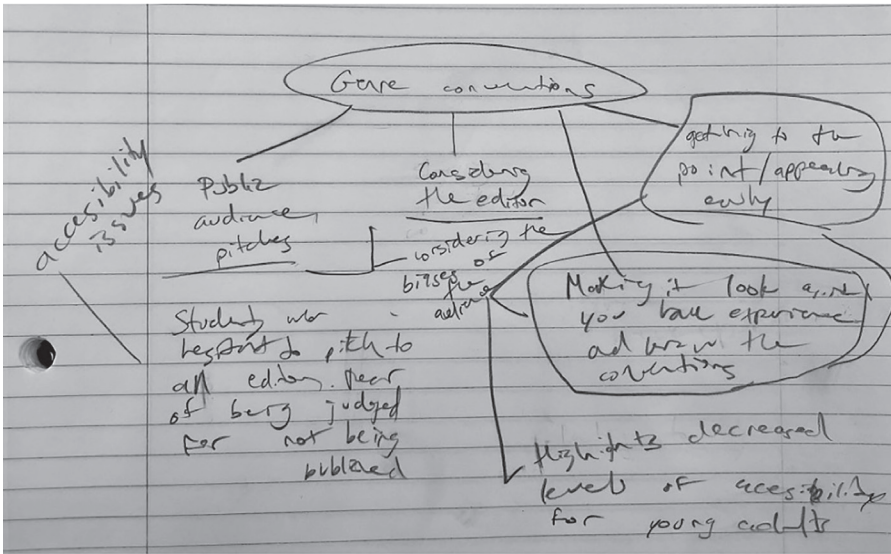 Genre conventions
accesibility
issues
Public
audience
pitches
Considering
the editor
considering the
biases of
the
audience
getting to the
point/appealing
early
Making it look as if
you have experience
and know the
conventions
Students were
hesitant to pitch to
an editor. Fear
of being judged
for not being
published
Highlights decreased
levels of acessibility
for young adults